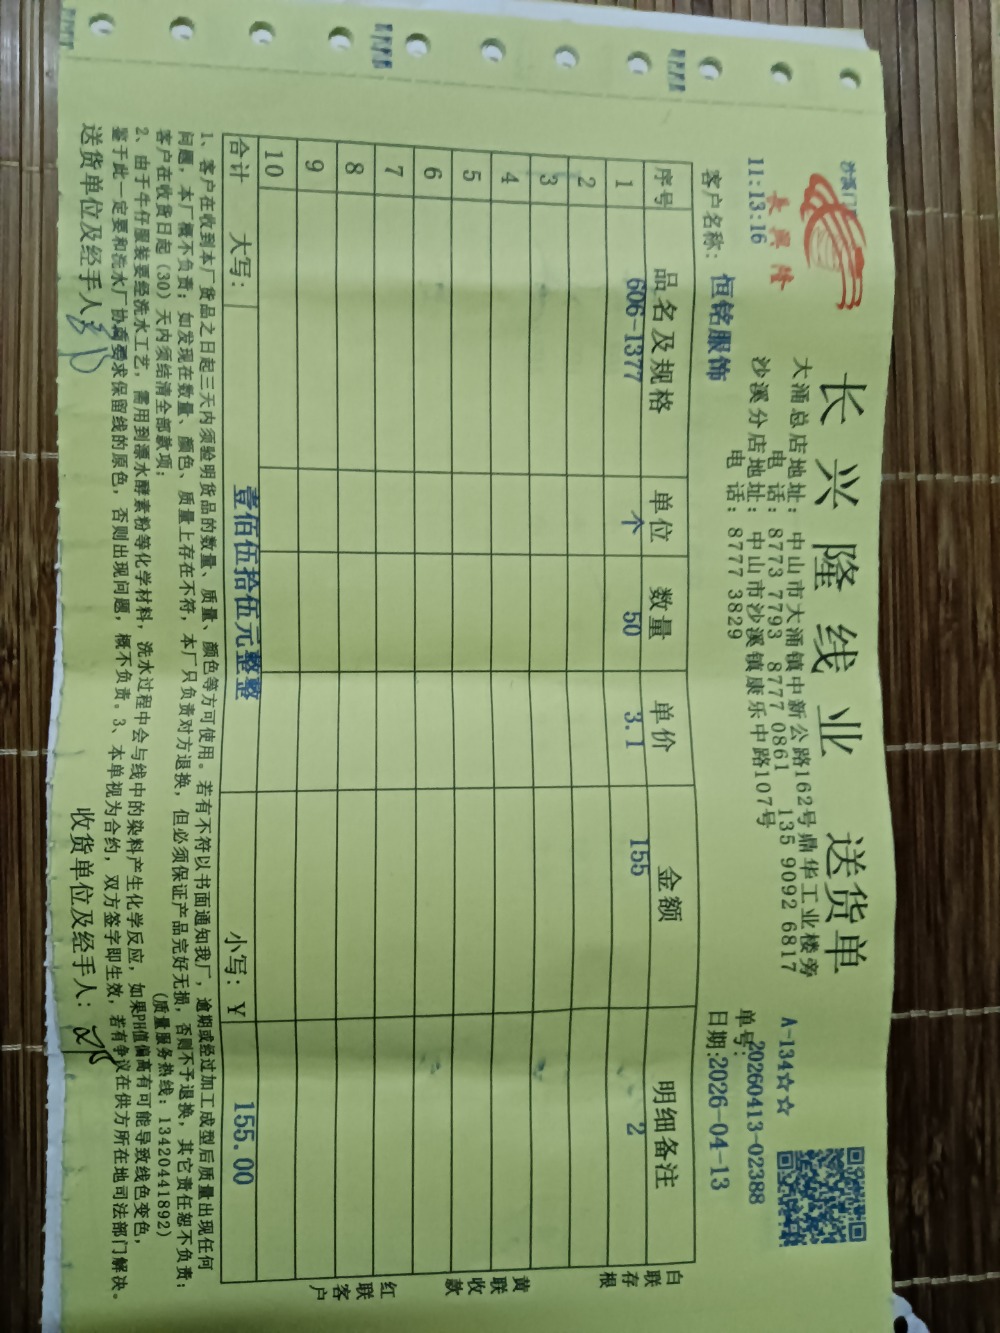 沙溪门
长兴隆
11:13:16
长兴隆线业 送货单
大涌总店地址：中山市大涌镇中新公路162号鼎华工业楼旁
电话：8773 7793 8777 0861 135 9092 6817
沙溪分店地址：中山市沙溪镇康乐中路107号
电话：8777 3829
A-134☆☆
单号：20260413-02388
日期：2026-04-13
客户名称：恒铭服饰
序号 品名及规格 单位 数量 单价 金额 明细备注
1 606-1377 个 50 3.1 155 2
2
3
4
5
6
7
8
9
10
合计 大写：壹佰伍拾伍元整整 小写：￥ 155.00
白联存根
黄联收款
红联客户
1、客户在收到本厂货品之日起三天内须验明货品的数量、质量、颜色等方可使用。若有不符以书面通知我厂，逾期或经过加工成型后质量出现任何
问题，本厂概不负责；如发现在数量、颜色、质量上存在不符，本厂只负责对方退换，但必须保证产品完好无损，否则不予退换，其它责任恕不负责；
客户在收货日起（30）天内须结清全部款项； （质量服务热线：13420441892）
2、由于牛仔服装要经洗水工艺，需用到漂水酵素粉等化学材料，洗水过程中会与线中的染料产生化学反应，如果PH值偏高有可能导致线色变色，
鉴于此一定要和洗水厂协商要求保留线的原色，否则出现问题，概不负责。3、本单视为合约，双方签字即生效，若有争议在供方所在地司法部门解决。
送货单位及经手人： 收货单位及经手人：